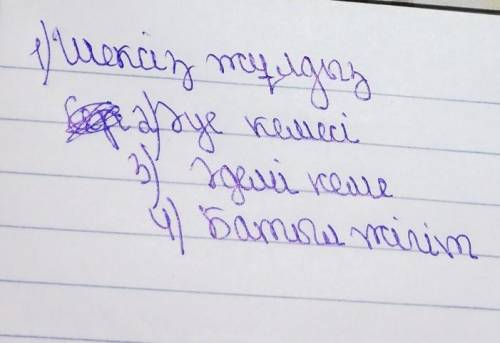 1) Шексіз жұлдыз
2) Әуе кемесі
3) Әдемі кеме
4) Батыл жігіт